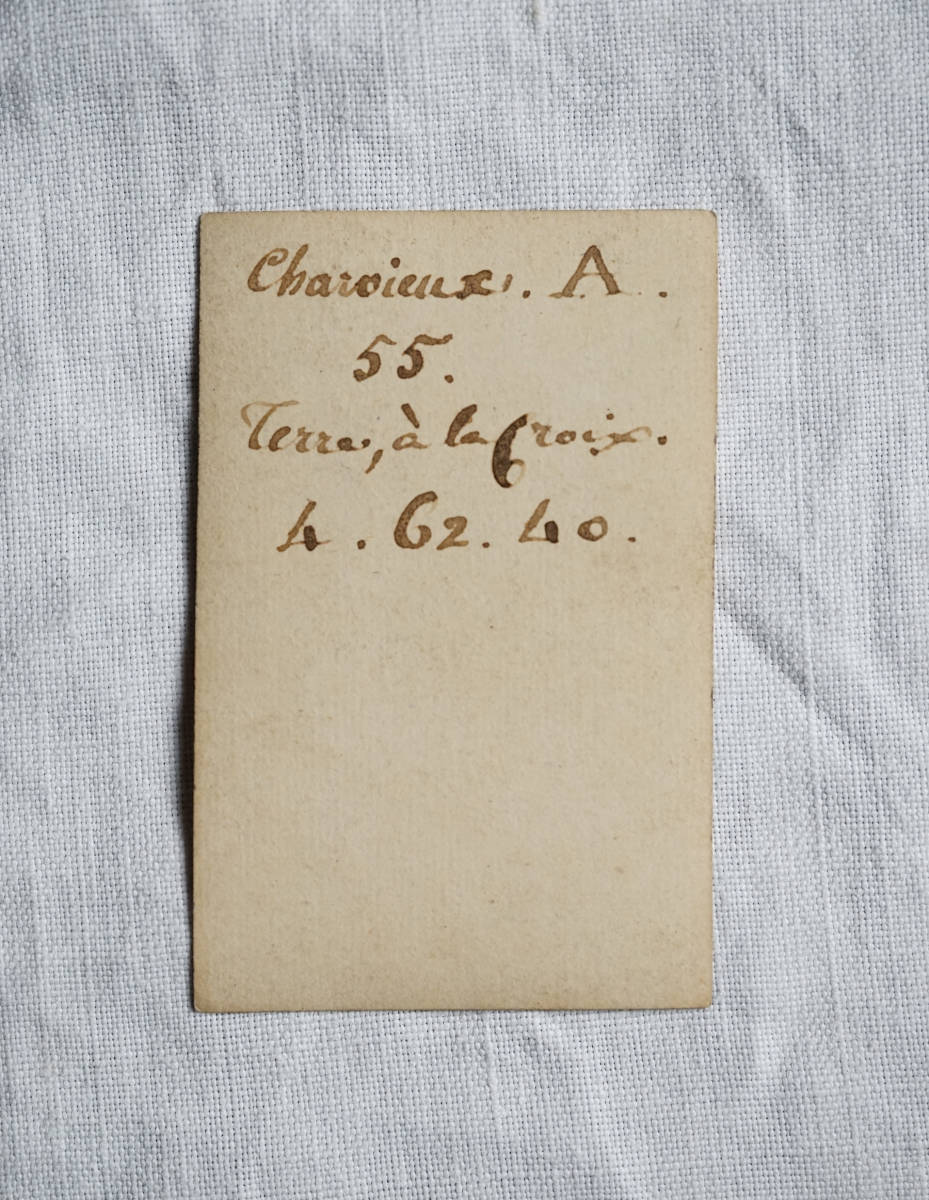 Charvieux. A.
55.
Terre, à la Croix.
4. 62. 40.